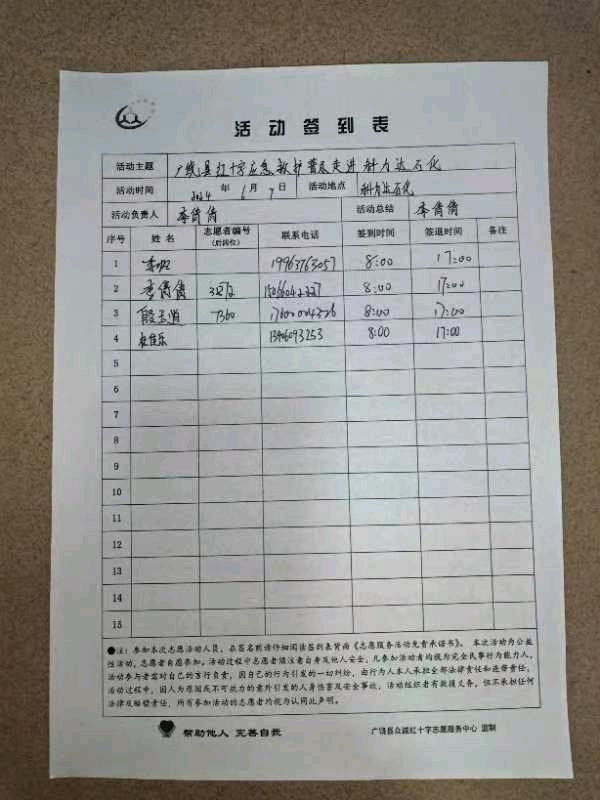 活动签到表
活动主题 广饶县红十字应急救护普及走进科力达石化
活动时间 2024 年 6 月 7 日 活动地点 科力达石化
活动负责人 李倩倩 活动总结 李倩倩
序号 姓名 志愿者编号（后四位） 联系电话 签到时间 签退时间 备注
1 19963763057 8:00 17:00
2 李倩倩 3272 8:00 17:00
3 7360 8:00 17:00
4 8:00 17:00
5
6
7
8
9
10
11
12
13
14
15
●注：参加本次志愿活动人员，在签名前请仔细阅读签到表背面《志愿服务活动免责承诺书》。本次活动为公益
性活动，志愿者自愿参加。活动过程中志愿者须注意自身及他人安全，凡参加活动者均视为完全民事行为能力人，
活动参与者需对自己的言行负责，因自己的行为引发的一切纠纷，由行为人本人承担全部法律责任和连带责任。
活动过程中，因人为原因或不可抗力的意外引发的人身伤害及安全事故，活动组织者有救援义务，但不承担任何
法律及赔偿责任，所有参加活动的志愿者均视为认同此声明。
帮助他人 完善自我 广饶县众诚红十字志愿服务中心 监制